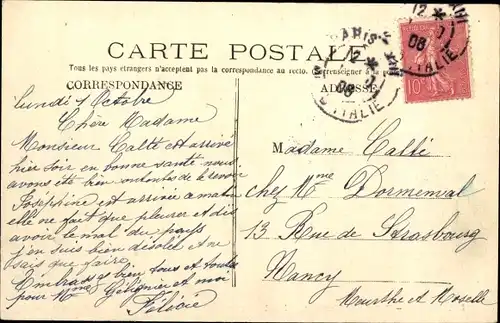 CARTE POSTALE
Tous les pays étrangers n'acceptent pas la correspondance au recto. (Se renseigner à la poste
CORRESPONDANCE
ADRESSE
PARIS
12 *
08
D'ITALIE
12 *
08
ITALIE
10
Lundi 1 Octobre
Chère Madame
Monsieur Calté est arrivé
hier soir en bonne santé nous
avons été bien contentes de le revoir
Josephine est arrivée a matin
elle ne fait que pleurer et dit
avoir le mal du pays
j'en suis bien désolée et ne
sais que faire.
Embrassez bien tous et toutes
pour Mme et moi
Félicie
Madame Calté
chez Mme Dormeval
13 Rue de Strasbourg
Nancy
Meurthe et Moselle